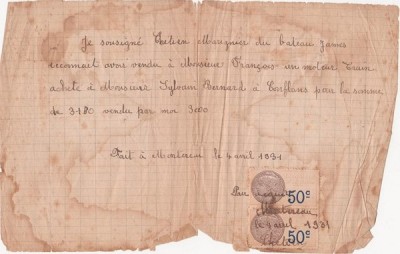 Je soussigné Thelien Marinier du bateau James
reconnait avoir vendu à Monsieur François un moteur Train
acheté à Monsieur Sylvain Bernard à Conflans pour la somme
de 3180 vendu par moi 3000
Fait à Montereau le 4 avril 1931
Par
50c
Montereau
le 4 avril 1931
50c